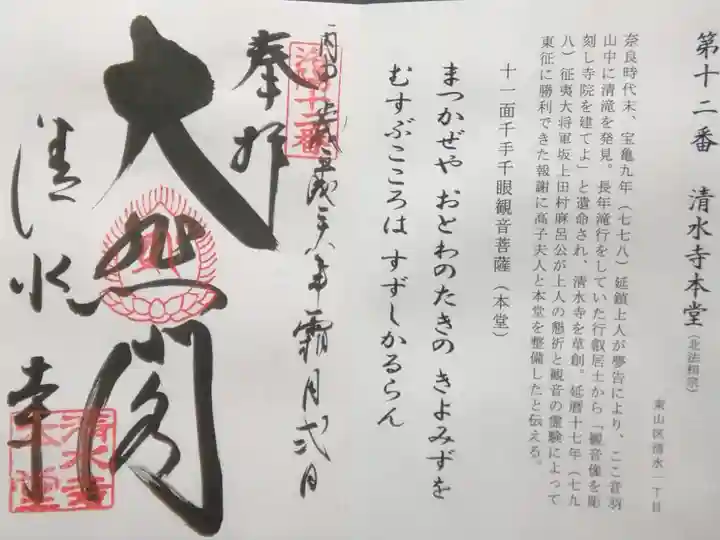 第十二番 清水寺本堂(北法相宗)
東山区清水一丁目
奈良時代末、宝亀九年(七七八)延鎮上人が夢告により、ここ音羽
山中に清滝を発見。長年滝行をしていた行叡居士から「観音像を彫
刻し寺院を建てよ」と遺命され、清水寺を草創。延暦十七年(七九
八)征夷大将軍坂上田村麻呂公が上人の懇祈と観音の霊験によって
東征に勝利できた報謝に高子夫人と本堂を整備したと伝える。
十一面千手千眼観音菩薩(本堂)
まつかぜや おとわのたきの きよみずを
むすぶこころは すずしかるらん
丙申歳 平成二八年霜月弐日
奉拝
第十二番
大悲閣
清水寺
清水寺
本堂